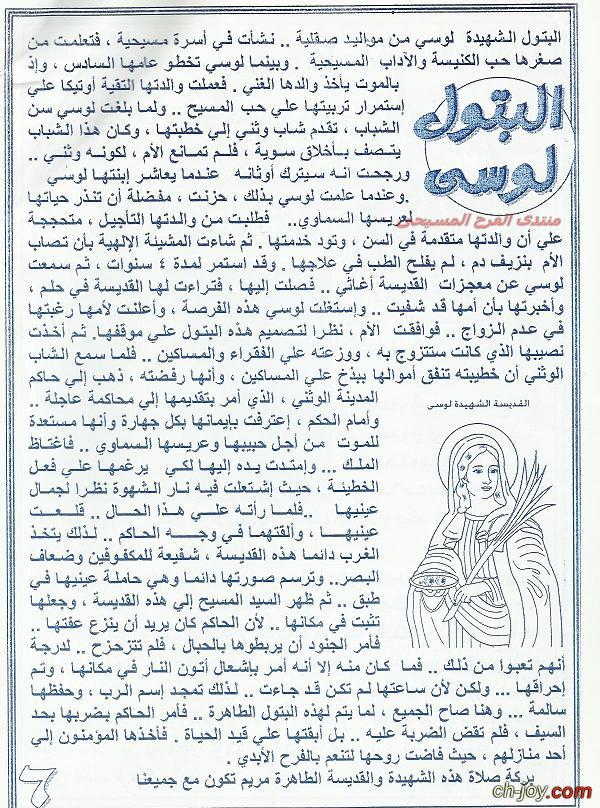 البتول الشهيدة لوسي من مواليد صقلية .. نشأت في أسرة مسيحية ، فتعلمت من
صغرها حب الكنيسة والآداب المسيحية . وبينما لوسي تخطو عامها السادس ، وإذ
بالموت يأخذ والدها الغني . فعملت والدتها التقية أوتيكا علي
إستمرار تربيتها علي حب المسيح .. ولما بلغت لوسي سن
الشباب ، تقدم شاب وثني إلي خطبتها ، وكان هذا الشباب
يتصف بأخلاق سوية ، فلم تمانع الأم ، لكونه وثني ..
ورجحت انه سيترك أوثانه عندما يعاشر إبنتها لوسي
.وعندما علمت لوسي بذلك ، حزنت ، مفضلة أن تنذر حياتها
لعريسها السماوي.. فطلبت من والدتها التأجيل ، متحججة
البتول
لوسى
منتدى الفرح المسيحى
علي أن والدتها متقدمة في السن ، وتود خدمتها . ثم شاءت المشيئة الإلهية بأن تصاب
الأم بنزيف دم ، لم يفلح الطب في علاجها . وقد استمر لمدة ٤ سنوات ، ثم سمعت
لوسي عن معجزات القديسة أغاثي .. فصلت إليها ، فتراءت لها القديسة في حلم ،
وأخبرتها بأن أمها قد شفيت .. وإستغلت لوسي هذه الفرصة ، وأعلنت لأمها رغبتها
في عدم الزواج .. فوافقت الأم ، نظرا لتصميم هذه البتول علي موقفها. ثم أخذت
نصيبها الذي كانت ستتزوج به ، ووزعته علي الفقراء والمساكين .. فلما سمع الشاب
الوثني أن خطيبته تنفق أموالها ببذخ علي المساكين ، وأنها رفضته ، ذهب إلي حاكم
المدينة الوثني ، الذي أمر بتقديمها إلي محاكمة عاجلة ..
وأمام الحكم ، إعترفت بإيمانها بكل جهارة وأنها مستعدة
للموت من أجل حبيبها وعريسها السماوي .. فاغتاظ
الملك ... وإمتدت يده إليها لكي يرغمها علي فعل
الخطيئة ، حيث إشتعلت فيه نار الشهوة نظرا لجمال
عينيها ..فلما رأته علي هذا الحال .. قلعت
عينيها ، وألقتهما في وجه الحاكم .. لذلك يتخذ
الغرب دائما هذه القديسة ، شفيعة للمكفوفين وضعاف
البصر.. وترسم صورتها دائما وهي حاملة عينيها في
طبق .. ثم ظهر السيد المسيح إلي هذه القديسة ، وجعلها
تثبت في مكانها .. لأن الحاكم كان يريد أن ينزع عفتها ..
فأمر الجنود أن يربطوها بالحبال ، فلم تتزحزح .. لدرجة
القديسة الشهيدة لوسى
أنهم تعبوا من ذلك .. فما كان منه إلا أنه أمر بإشعال أتون النار في مكانها ، وتم
إحراقها ... ولكن لأن ساعتها لم تكن قد جاءت .. لذلك تمجد إسم الرب ، وحفظها
سالمة ... وهنا صاح الجميع ، لما يتم لهذه البتول الطاهرة .. فأمر الحاكم بضربها بحد
السيف ، فلم تقض الضربة عليه .. بل أبقتها علي قيد الحياة . فأخذها المؤمنون إلي
أحد منازلهم ، حيث فاضت روحها لتنعم بالفرح الأبدي .
بركة صلاة هذه الشهيدة والقديسة الطاهرة مريم تكون مع جميعنا
٦
ch-joy.com